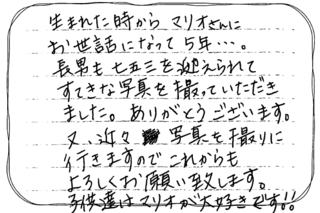 生まれた時から マリオさんに
お世話になって 5年…。
長男も 七五三を迎えられて
すてきな写真を撮っていただき
ました。ありがとうございます。
又、近々 写真を撮りに
行きますので これからも
よろしくお願い致します。
子供達はマリオが大好きです!!